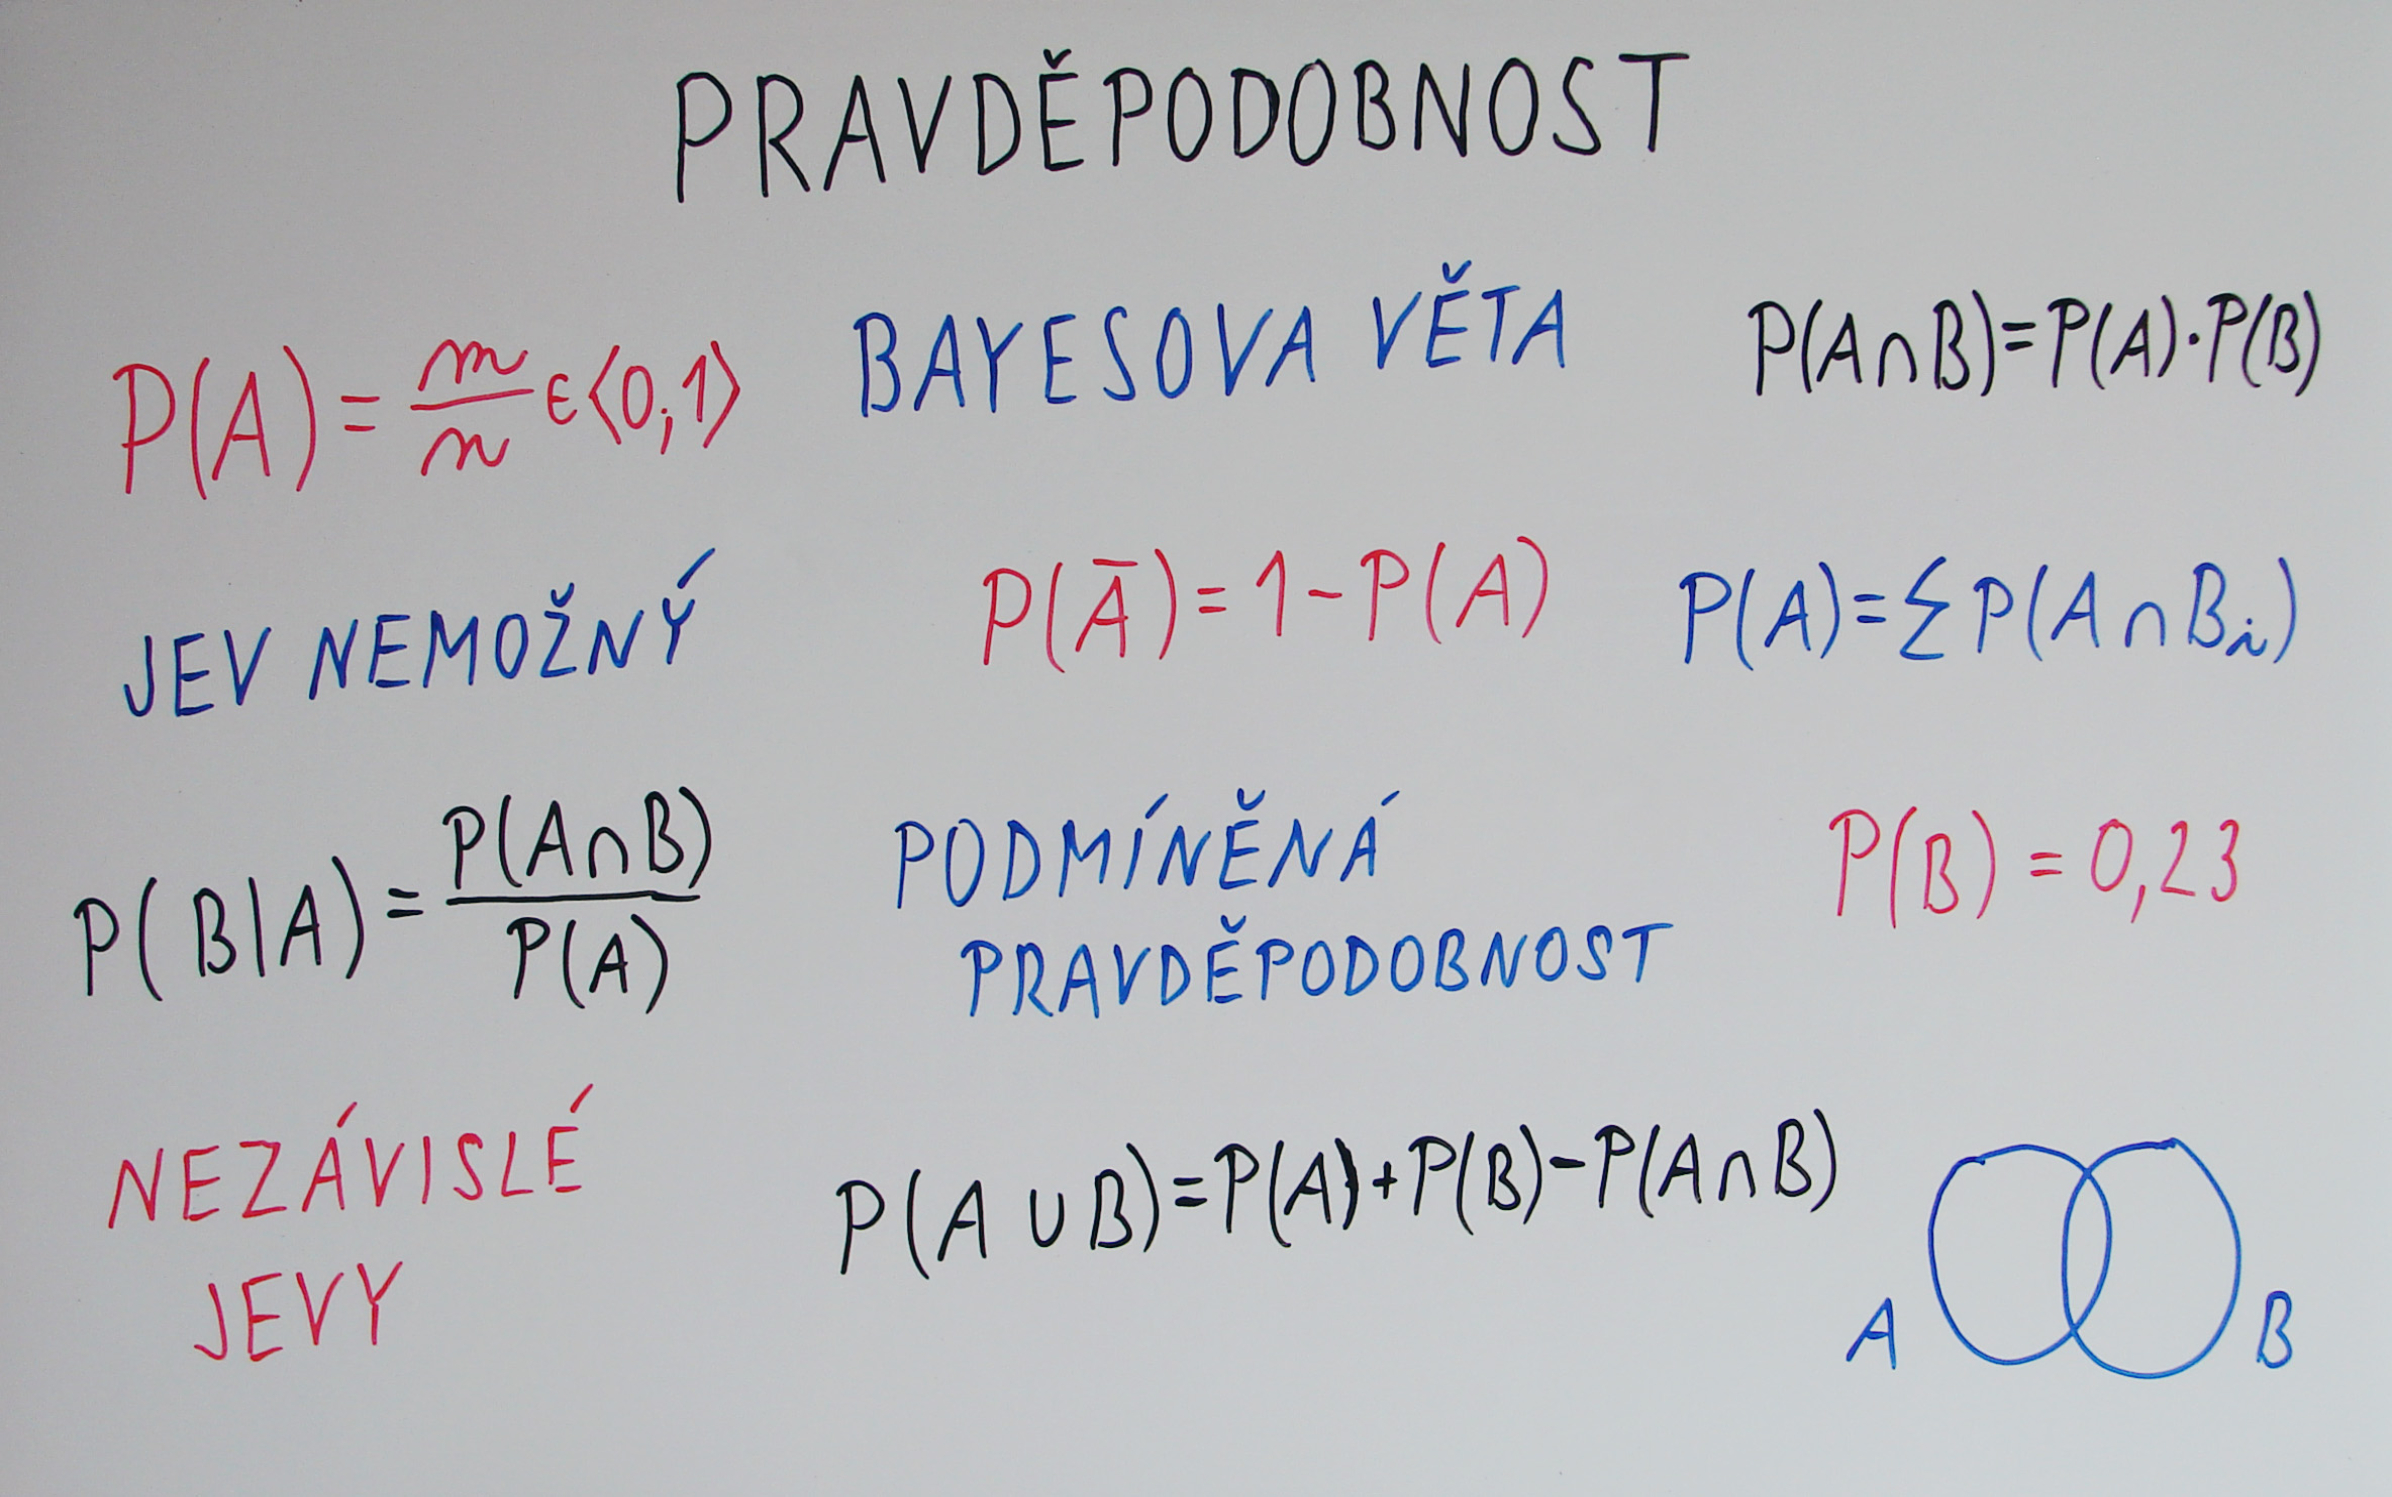 PRAVDĚPODOBNOST
P(A) = m/n ϵ⟨0,1⟩
BAYESOVA VĚTA
P(A∩B)=P(A)·P(B)
JEV NEMOŽNÝ
P(Ā) = 1-P(A)
P(A)=∑P(A∩Bᵢ)
P(B|A) = P(A∩B)/P(A)
PODMÍNĚNÁ
PRAVDĚPODOBNOST
P(B) = 0,23
NEZÁVISLÉ
JEVY
P(A∪B)=P(A)+P(B)-P(A∩B)
A
B